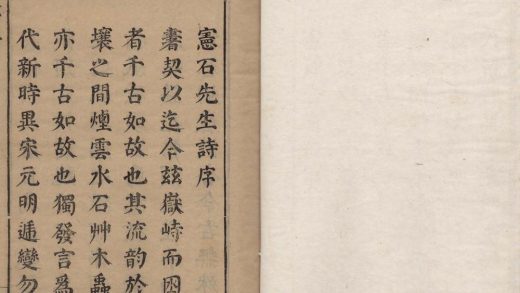 憲石先生詩序
書契以迄今茲嶽峙而囦
者千古如故也其流韵於
壤之間煙雲水石艸木蟲
亦千古如故也獨發言爲
代新時異宋元明遞變勿